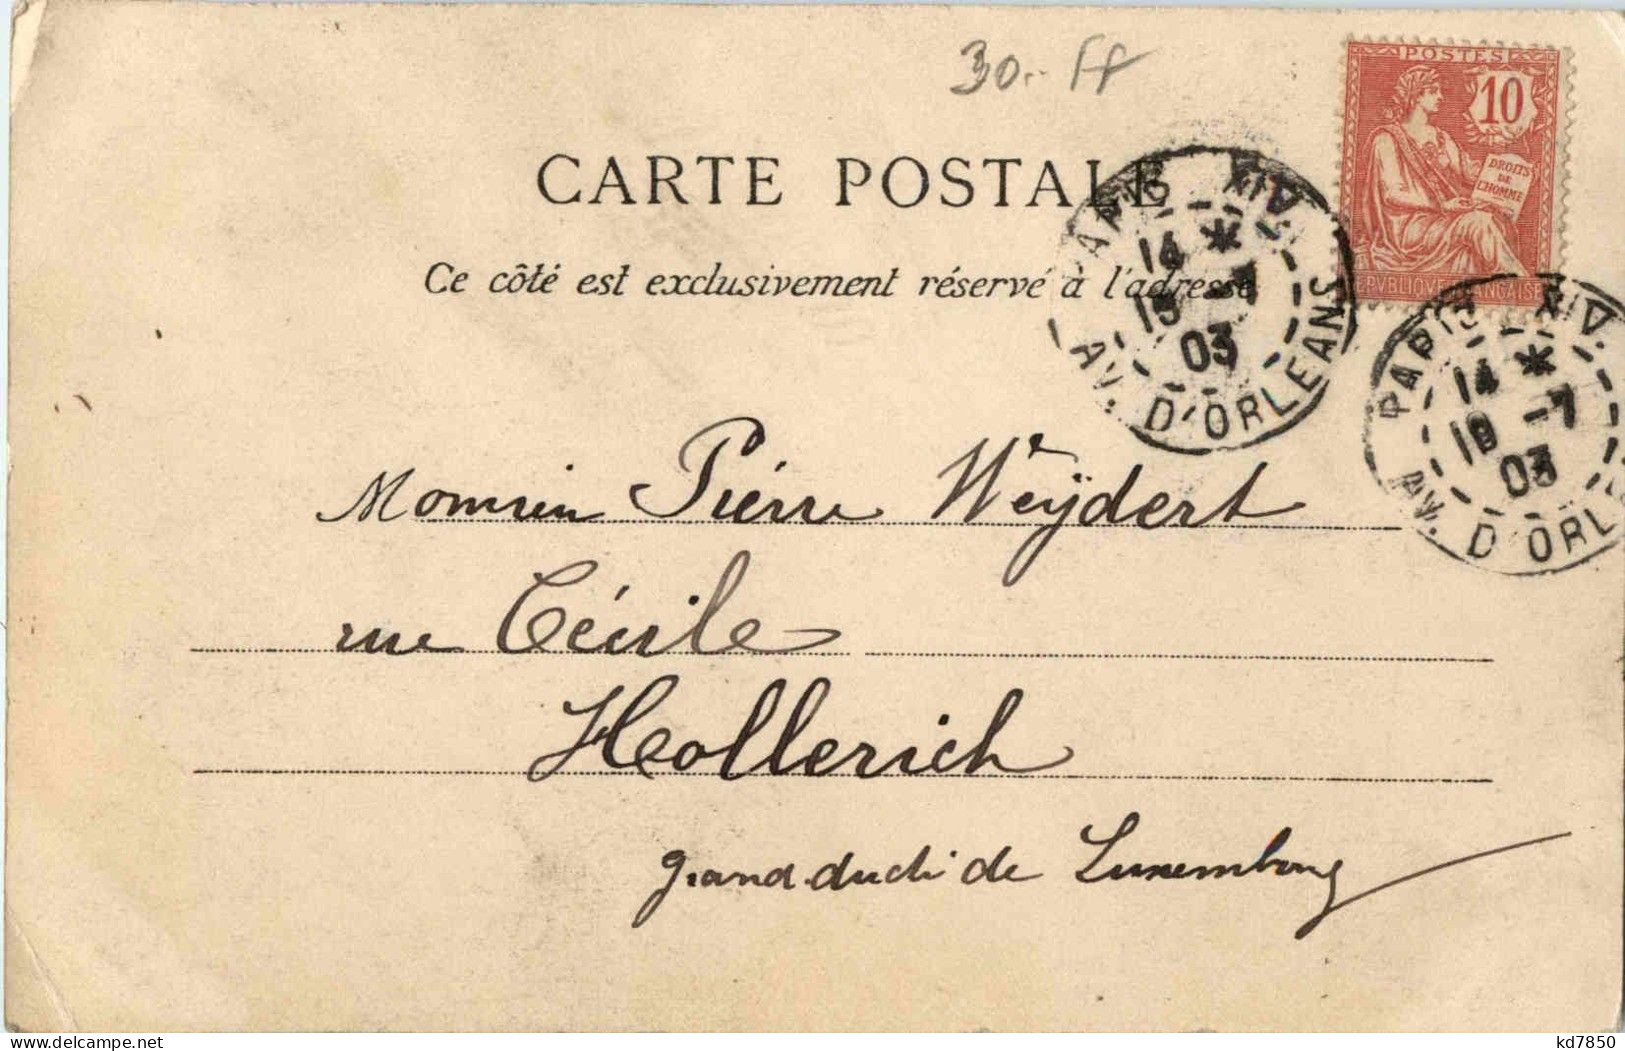 30.- FF
POSTES
10
DROITS
DE
L'HOMME
CARTE POSTALE
Ce côté est exclusivement réservé à l'adresse
PARIS XIV.
14 *
-7
03
AV. D'ORLEANS
PARIS XIV.
14 *
18 -7
03
AV. D'ORL
Monsieur Pierre Weydert
rue Cécile
Hollerich
grand-duché de Luxembourg
kd7850